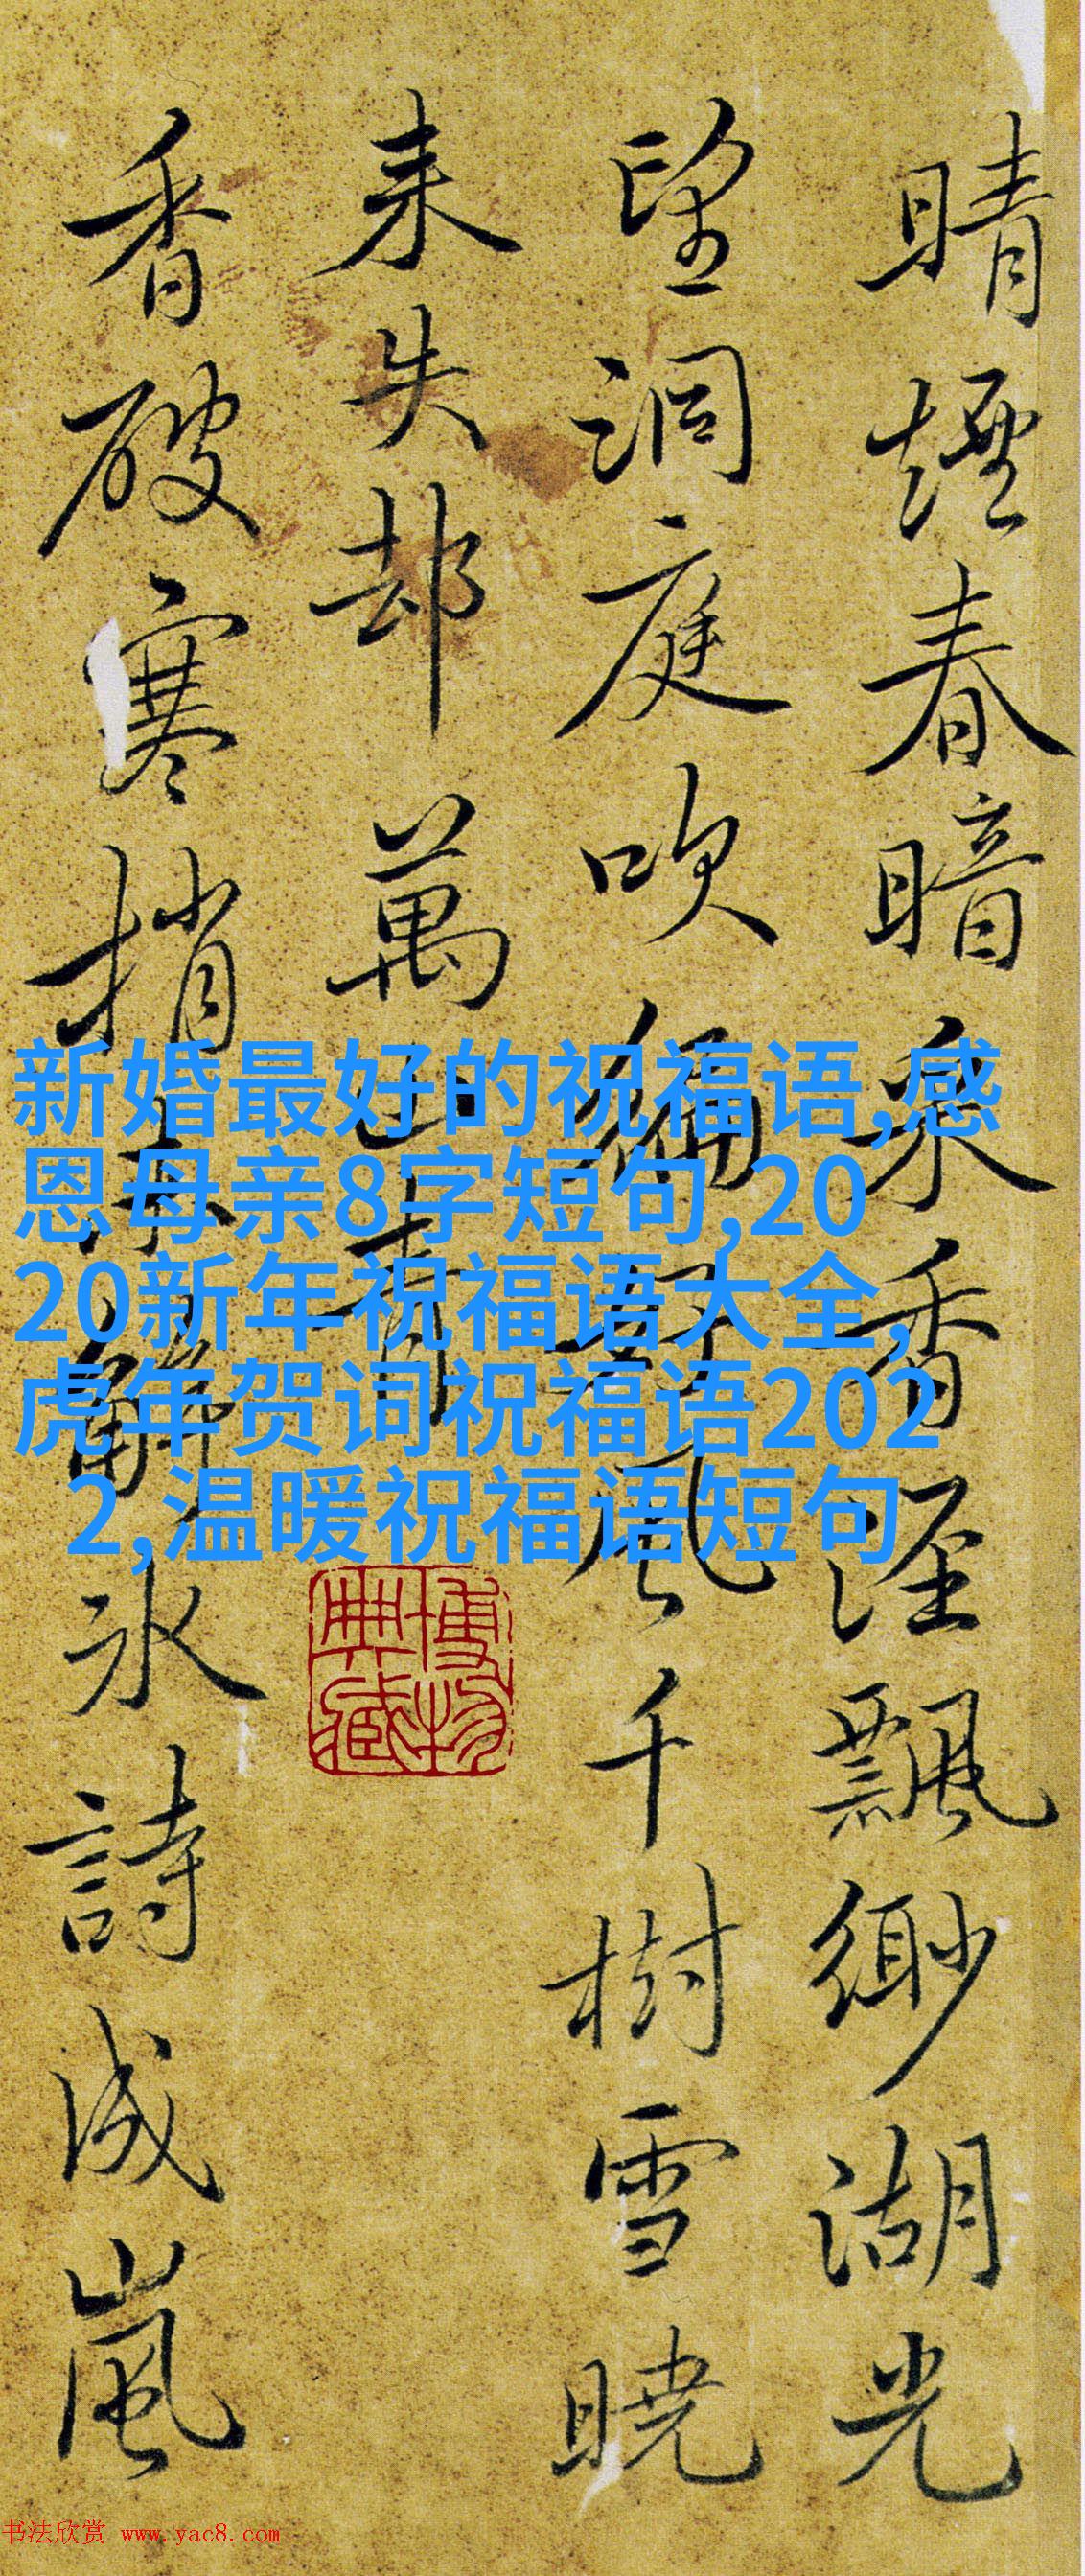 晴煙春暗香涇飄緲湖光
望洞庭吹風千樹雪曉
来失却萬青
香破寒梢冰詩成嵐
新婚最好的祝福语,感
恩母亲8字短句,20
20新年祝福语大全,
虎年贺词祝福语202
2,温暖祝福语短句
博物
典藏
书法欣赏 www.yac8.com